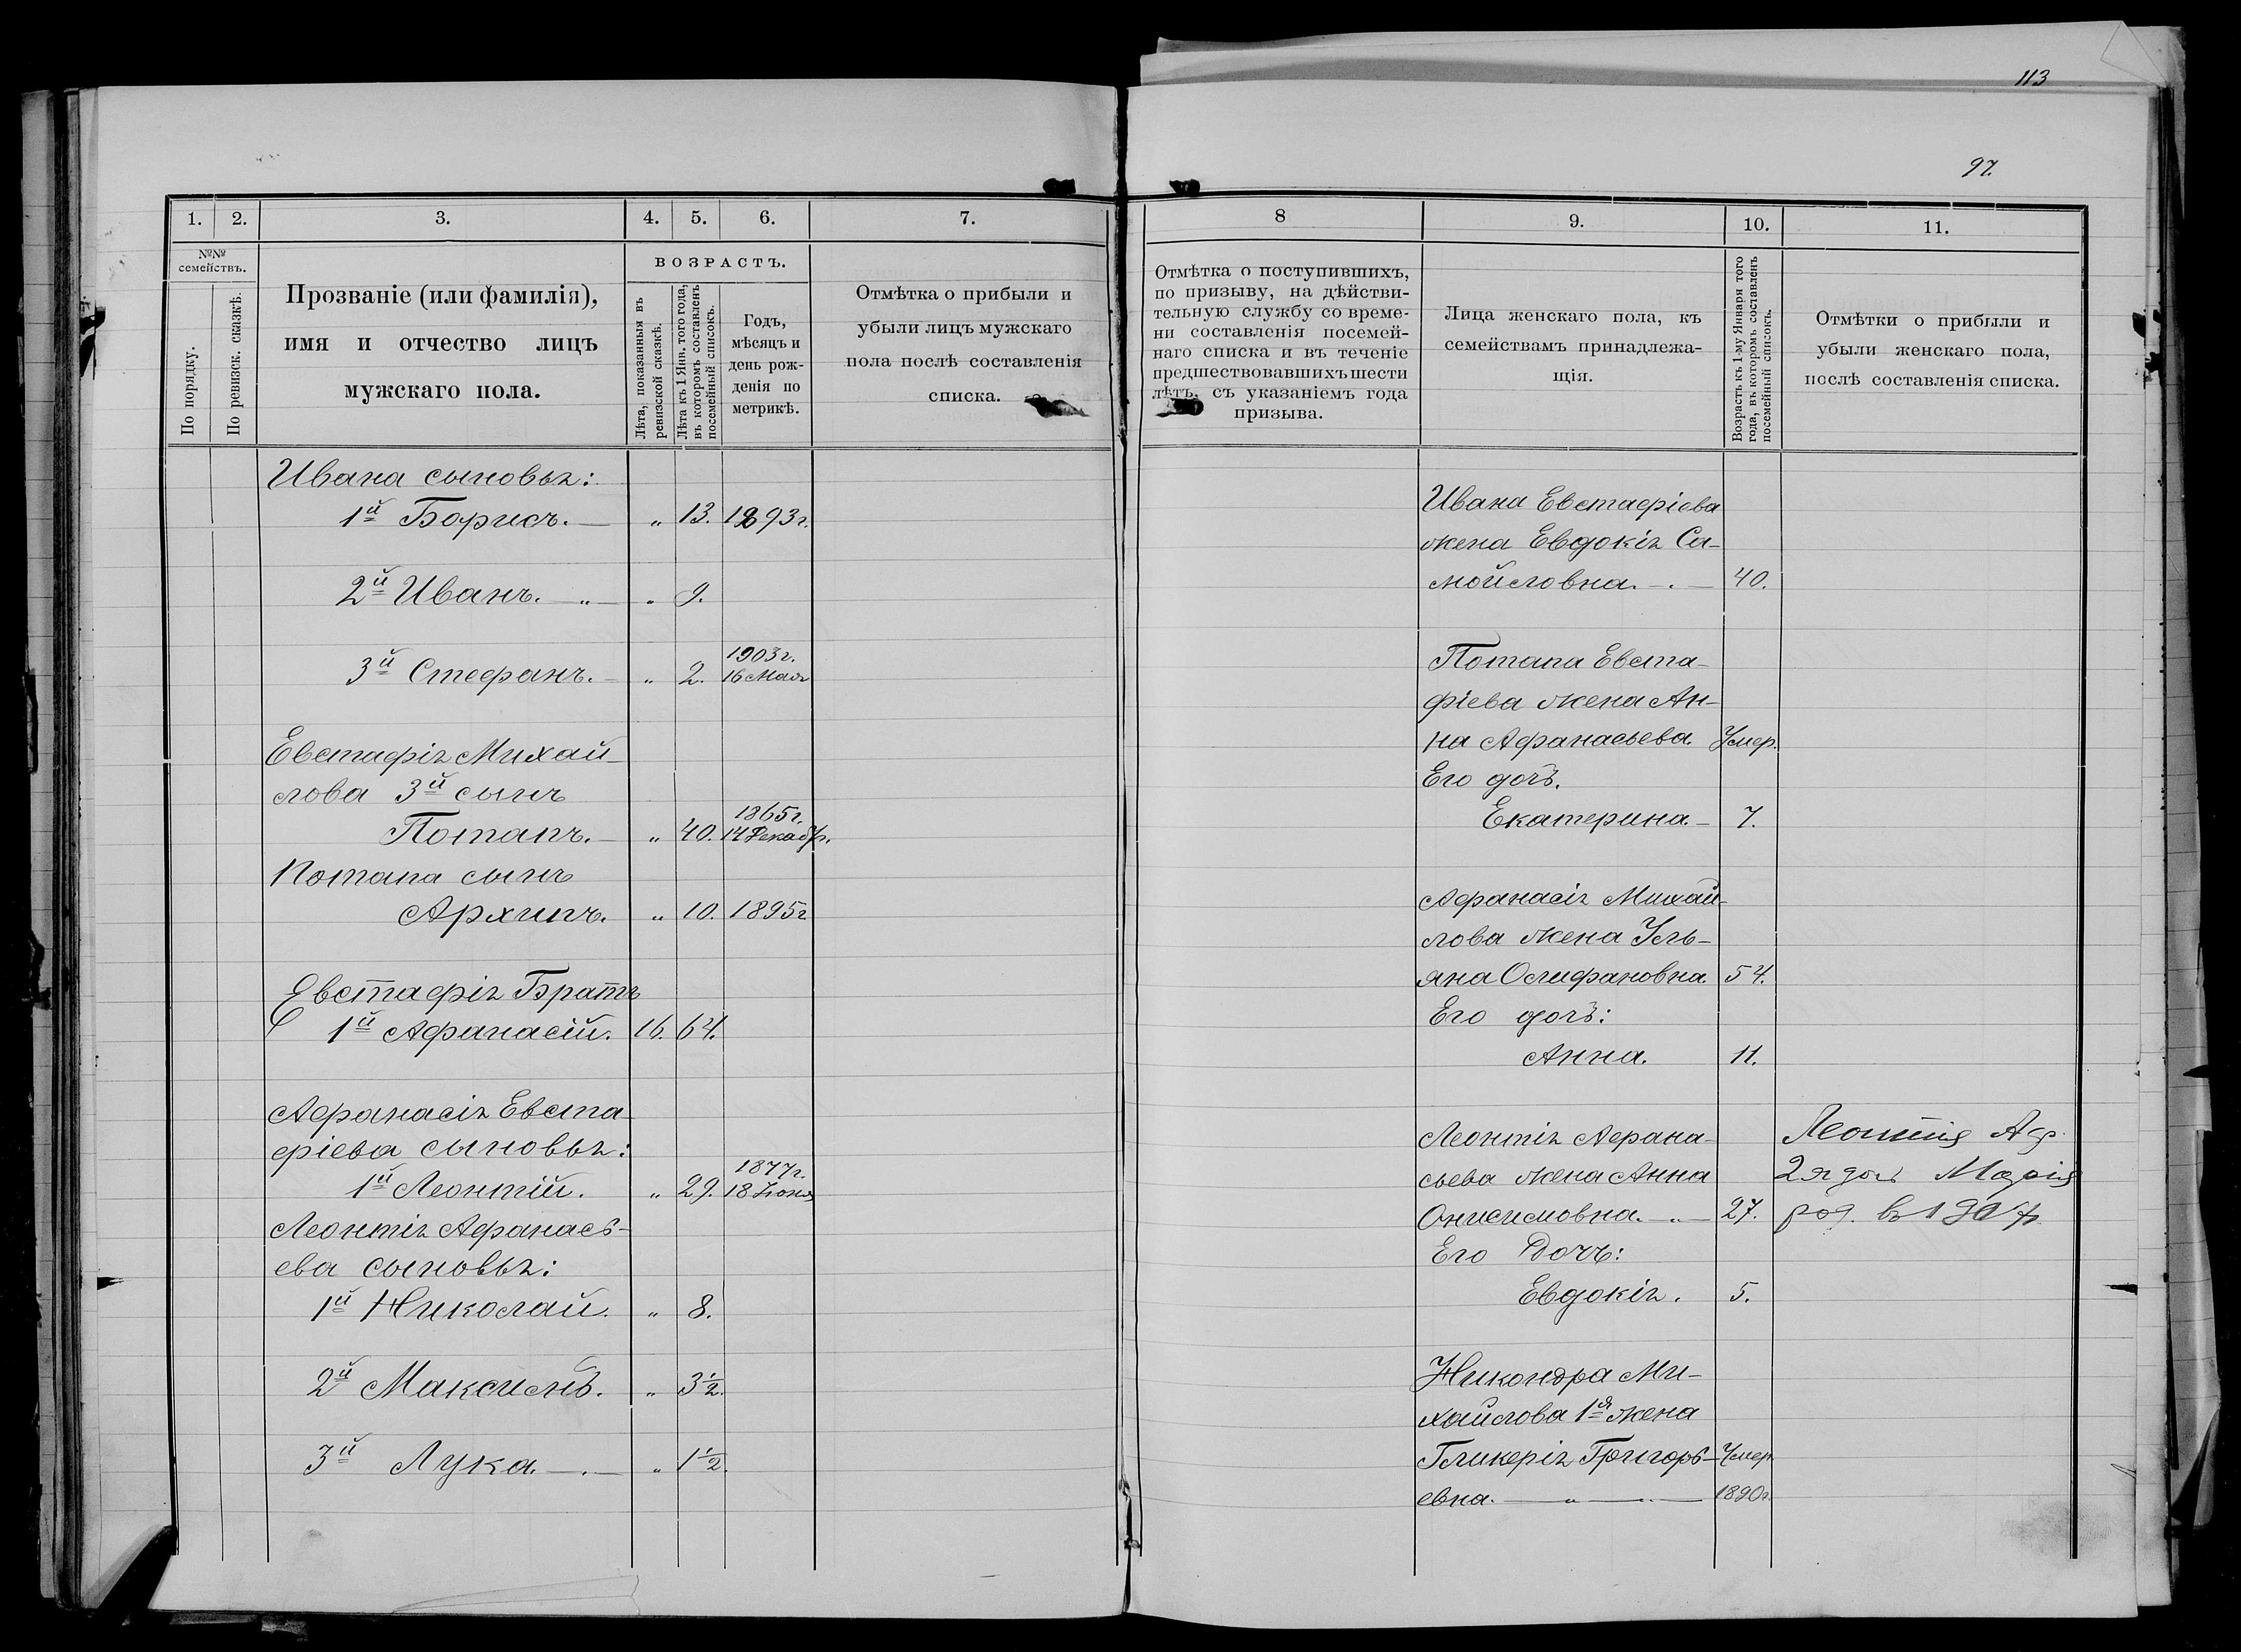 113
97.
1.
2.
3.
4.
5.
6.
7.
№№
семействъ.
По порядку.
По ревизск. сказкѣ.
Прозваніе (или фамилія),
имя и отчество лицъ
мужскаго пола.
ВОЗРАСТЪ.
Лѣта, показанныя въ
ревизской сказкѣ.
Лѣта къ 1 Янв. того года,
въ которомъ составленъ
посемейный списокъ.
Годъ,
мѣсяцъ и
день рож-
денія по
метрикѣ.
Отмѣтка о прибыли и
убыли лицъ мужскаго
пола послѣ составленія
списка.
Ивана сыновья:
1й Борисъ. — „ 13. 1893г.
2й Иванъ. „ — „ 9.
1903г.
3й Стефанъ. — „ 2. 16 Мая
Евстафія Михай-
лова 3й сынъ
1865г.
Потапъ. — „ 40. 14 Декабр.
Потапа сынъ
Архипъ. „ 10. 1895г
Евстафія Братъ
1й Афанасій. 16. 64.
Афанасія Евста-
фіева сыновья:
1877г.
1й Леонтій. „ 29. 18 Іюня
Леонтія Афанась-
ева сыновья:
1й Николай. „ 8.
2й Максимъ. „ 3½.
3й Лука. — . — „ 1½.
8
9.
10.
11.
Отмѣтка о поступившихъ,
по призыву, на дѣйстви-
тельную службу со време-
ни составленія посемей-
наго списка и въ теченіе
предшествовавшихъ шести
лѣтъ, съ указаніемъ года
призыва.
Лица женскаго пола, къ
семействамъ принадлежа-
щія.
Возрастъ къ 1-му Января того
года, въ которомъ составленъ
посемейный списокъ.
Отмѣтки о прибыли и
убыли женскаго пола,
послѣ составленія списка.
Ивана Евстафіева
жена Евдокія Са-
мойловна. — . — 40.
Потапа Евста-
фіева жена Ан-
на Афанасьева. Умер.
Его дочь.
Екатерина. — 7.
Афанасія Михай-
лова жена Уль-
яна Олифановна. 54.
Его дочь:
Анна. 11.
Леонтія Афана-
сьева жена Анна
Онисимовна. — „ — 27.
Его Дочь:
Евдокія. 5.
Леонтія Аф.
2я дочь Марія
род. въ
Никондра Ми-
хайлова 1я жена
Гликерія Григорь- Умер.
евна. — „ — „ — 1890г.